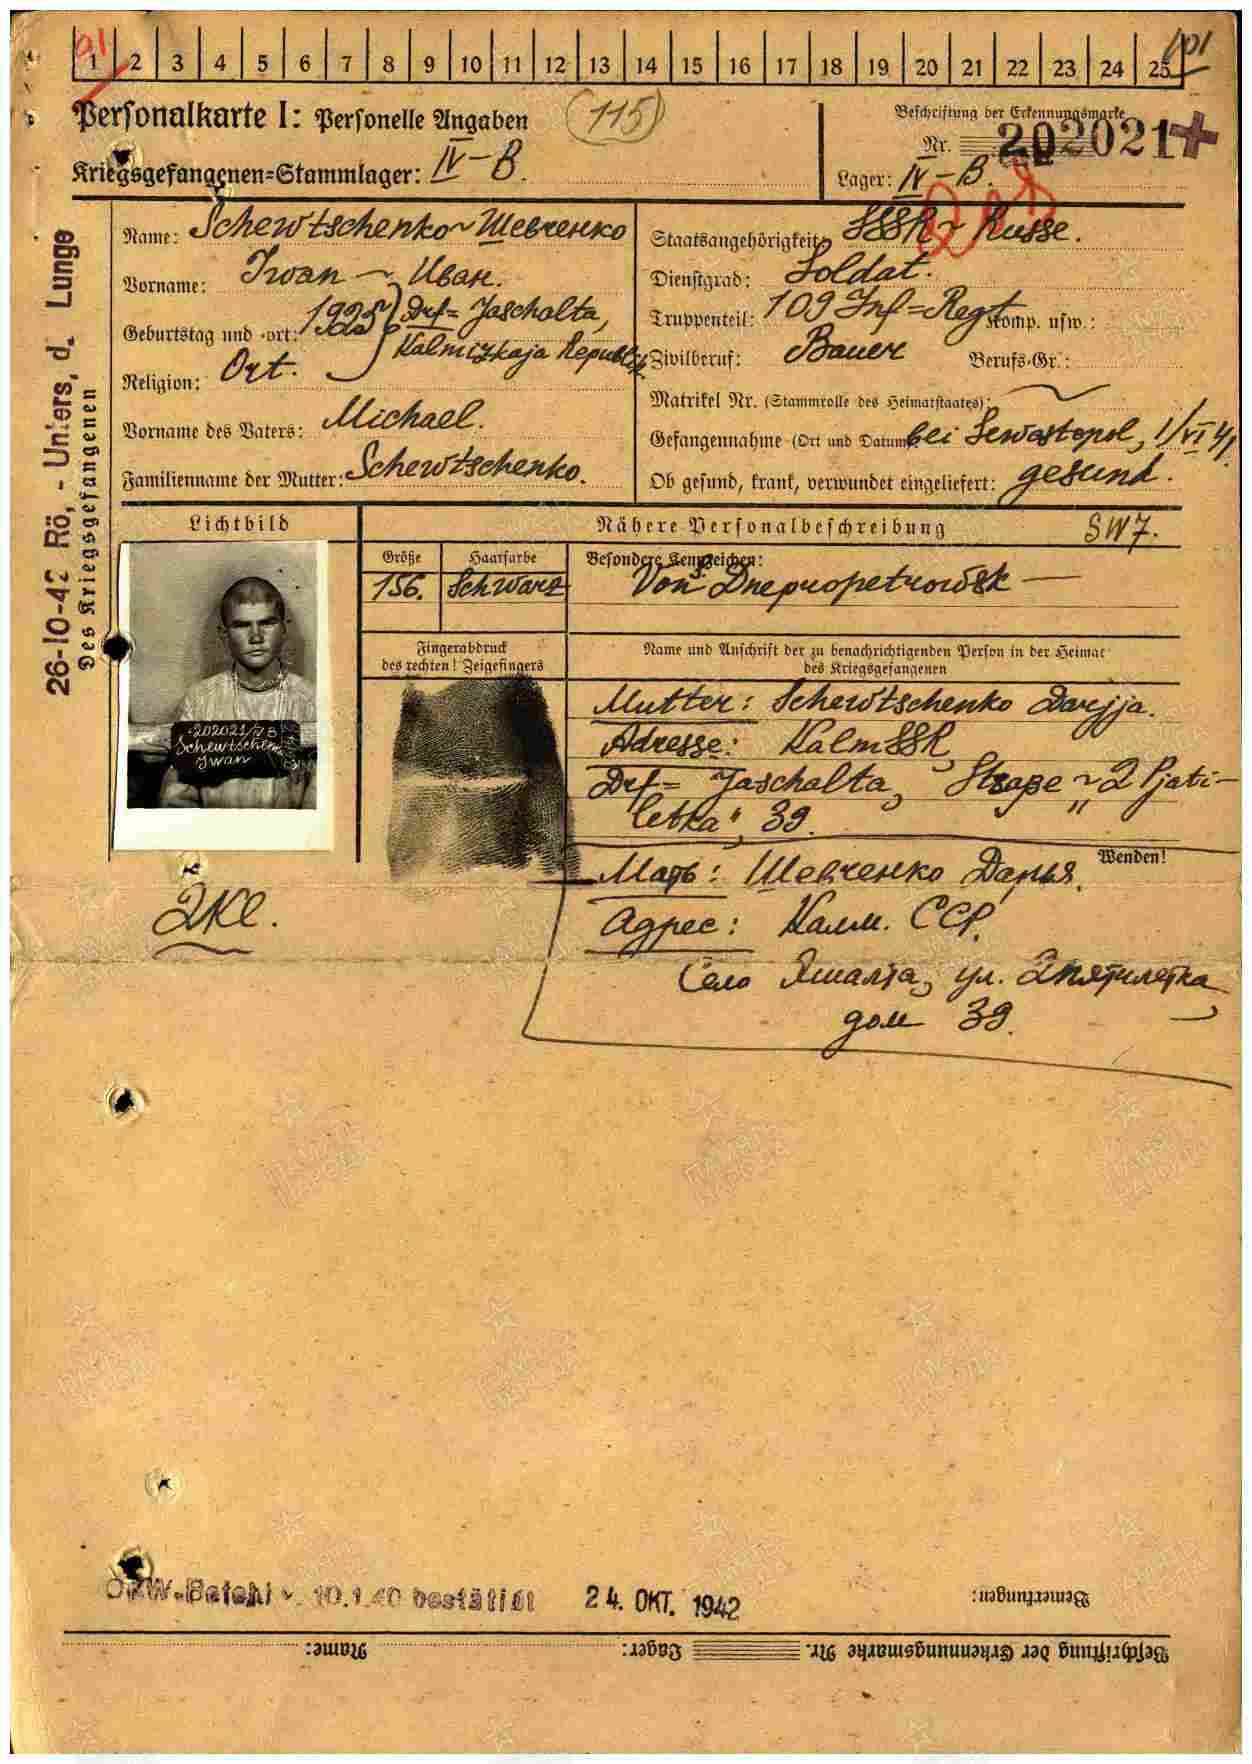 91
101
1 2 3 4 5 6 7 8 9 10 11 12 13 14 15 16 17 18 19 20 21 22 23 24 25
Personalkarte I: Personelle Angaben
115
Kriegsgefangenen=Stammlager: IV-B.
Beschriftung der Erkennungsmarke
Nr. 202021
Lager: IV-B.
26-10-42 Rö,- Unters, d. Lunge
Des Kriegsgefangenen
Name: Schewtschenko ~ Шевченко
Vorname: Iwan ~ Иван.
Geburtstag und -ort: 1925 Drf= Jaschalta,
Kalmizkaja Republik
Religion: Ort.
Vorname des Vaters: Michael.
Familienname der Mutter: Schewtschenko.
Staatsangehörigkeit: SSSR ~ Russe.
Dienstgrad: Soldat.
Truppenteil: 109 Inf=Regt Komp. usw.:
Zivilberuf: Bauer Berufs-Gr.:
Matrikel Nr. (Stammrolle des Heimatstaates):
Gefangennahme (Ort und Datum): bei Sewastopol, 1/VI 41.
Ob gesund, krank, verwundet eingeliefert: gesund.
Lichtbild
Nähere Personalbeschreibung SW7.
Größe Haarfarbe Besondere Kennzeichen:
156. Schwarz Von Dnepropetrowsk —
Fingerabdruck
des rechten! Zeigefingers
Name und Anschrift der zu benachrichtigenden Person in der Heimat
des Kriegsgefangenen
202021/IV B
Schewtschen
Iwan
Mutter: Schewtschenko Darjja.
Adresse: KalmSSR,
Drf= Jaschalta, Straße ~ 2 Pjati-
letka", 39.
Wenden!
Мать: Шевченко Дарья.
Адрес: Калм. ССР.
Село Яшалта, ул. 2 пятилетка,
дом 39.
OKW-Befehl v. 10.1.40 bestätigt 24. OKT. 1942
Bemerkungen:
Beschriftung der Erkennungsmarke Nr. Lager: Name:
ПАМЯТЬ НАРОДА